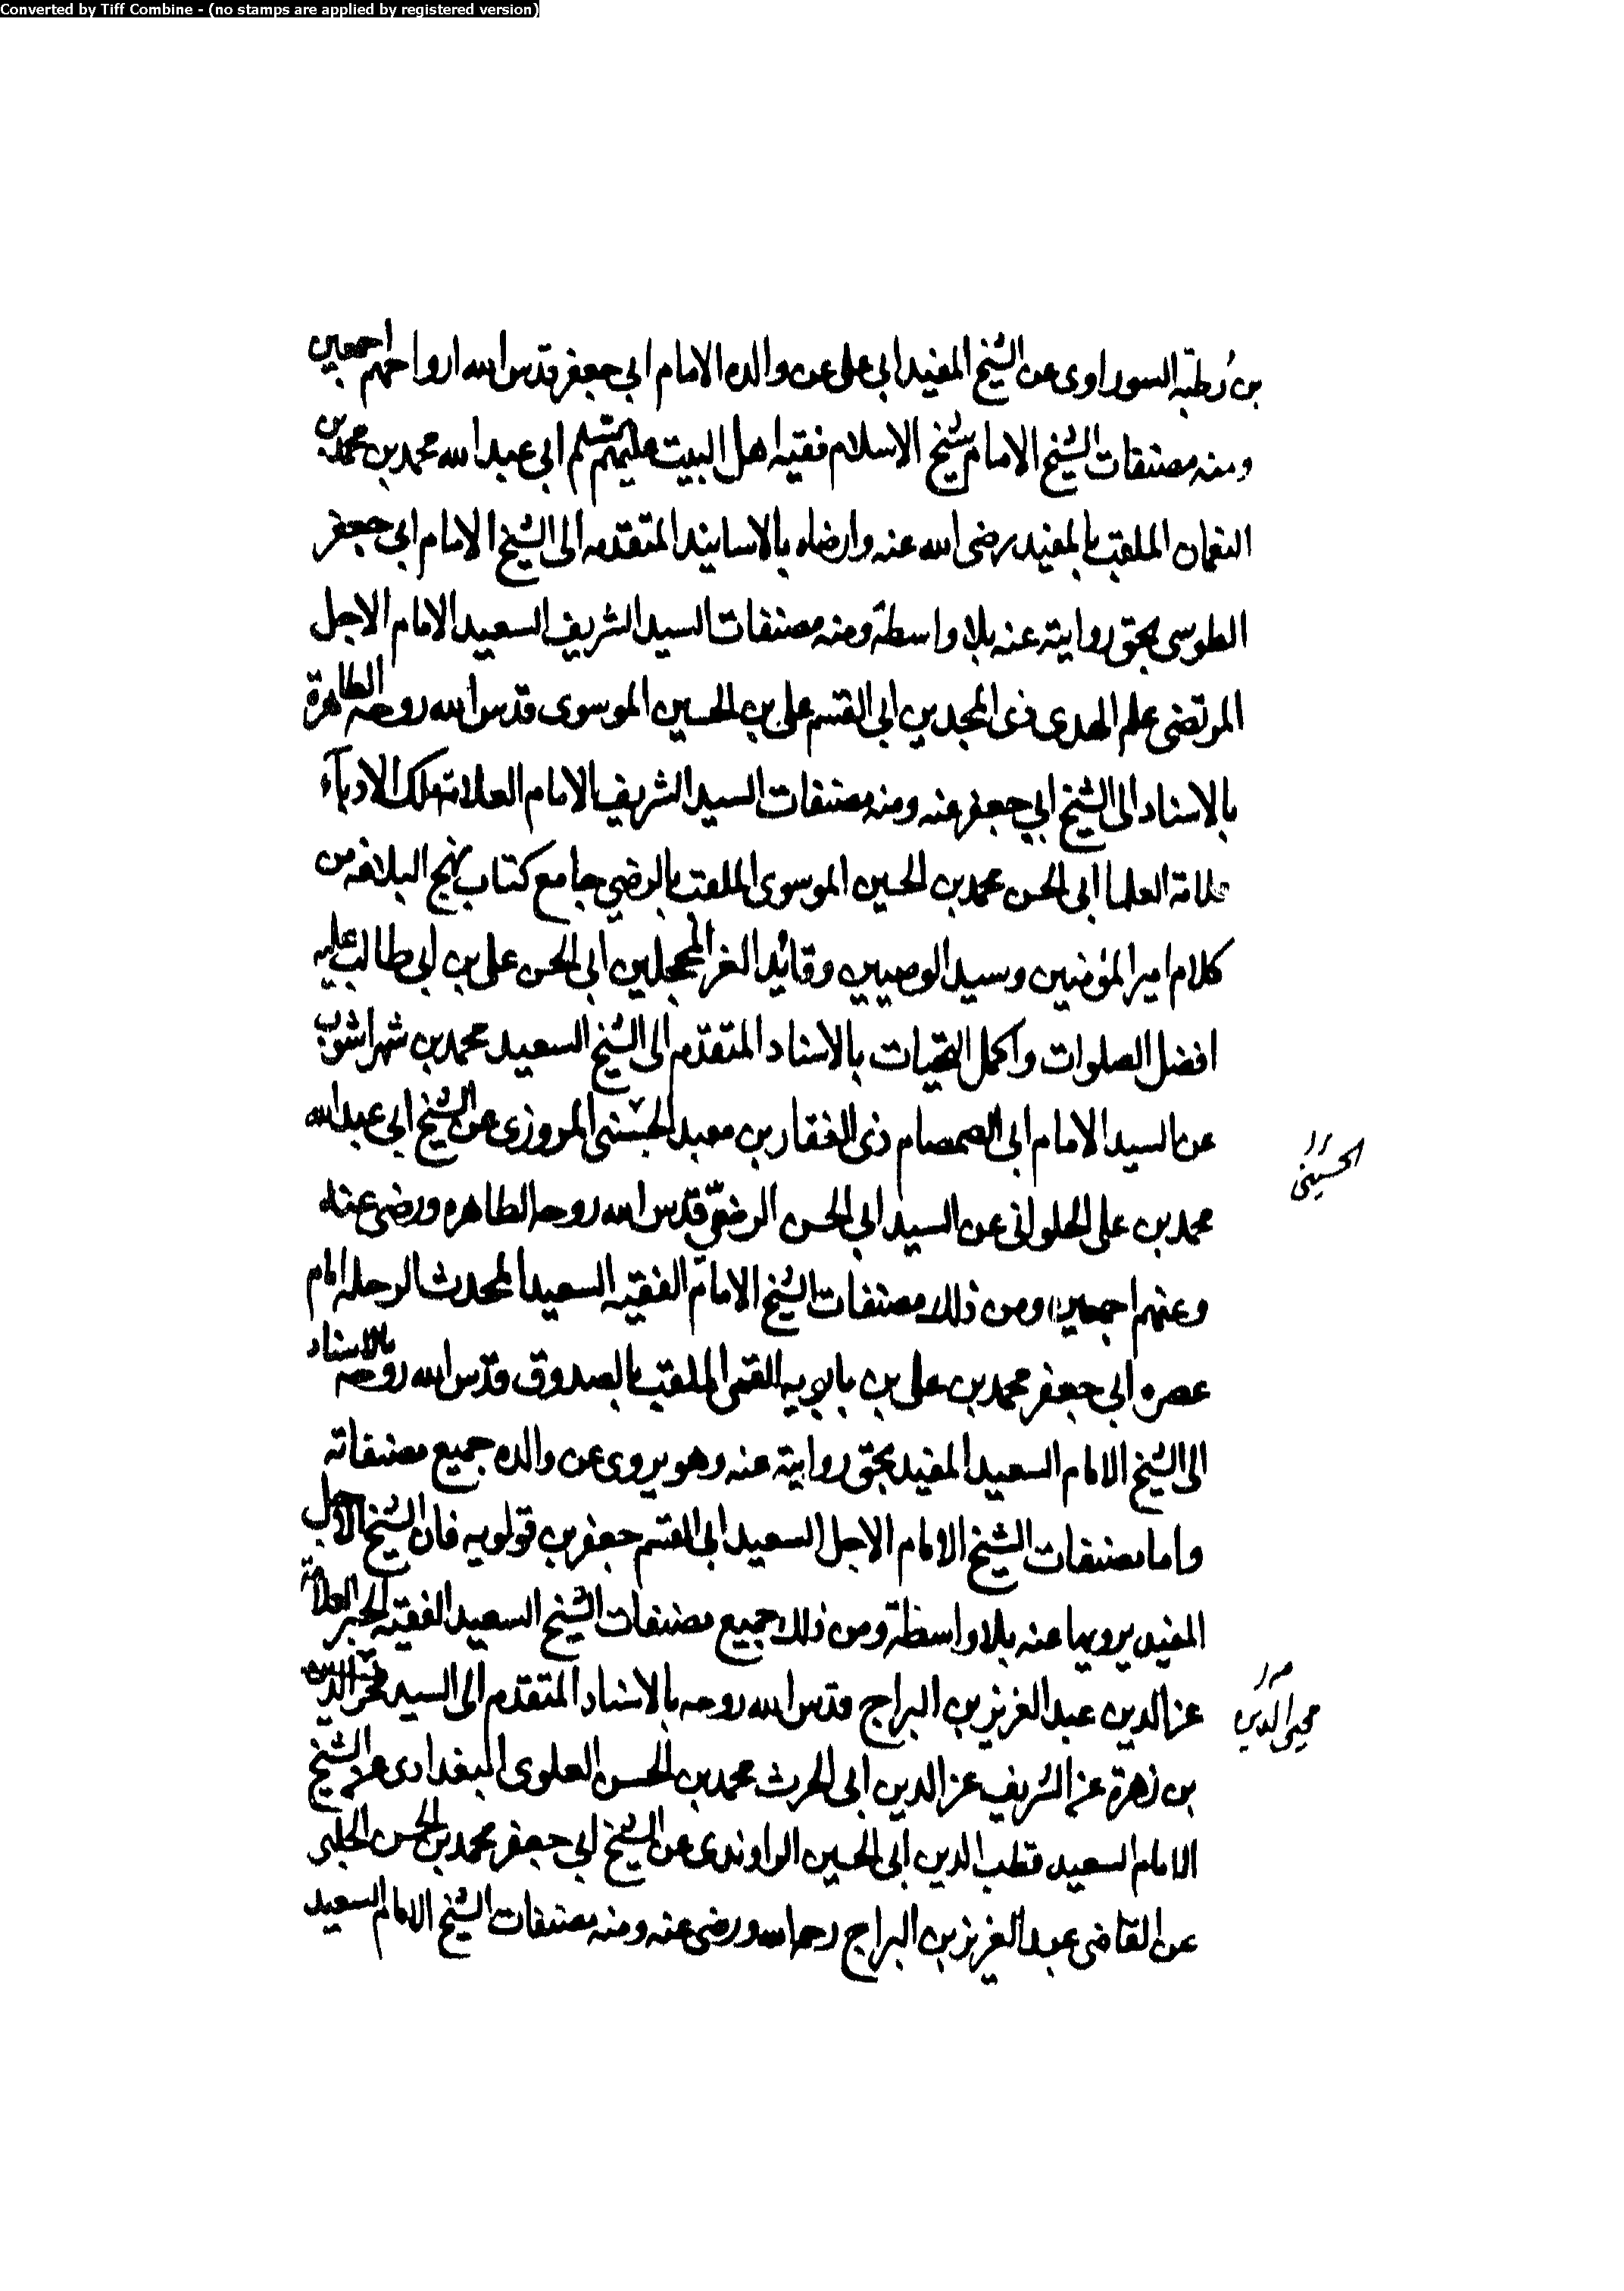 Converted by Tiff Combine - (no stamps are applied by registered version)
بن رطبة السوراوى عن الشيخ المفيد ابى على عن والده الامام ابى جعفر قدس الله ارواحهم اجمعين
ومنه مصنفات الشيخ الامام شيخ الاسلام فقيه اهل البيت عليهم السلم ابى عبد الله محمد بن محمد بن
النعمان الملقب بالمفيد رضى الله عنه وارضاه بالاسانيد المتقدمه الى الشيخ الامام ابى جعفر
الطوسى بحق روايته عنه بلا واسطة ومنه مصنفات السيد الشريف السعيد الامام الاجل
المرتضى علم الهدى ذى المجدين ابى القسم على بن الحسين الموسوى قدس الله روحه الطاهرة
بالاسناد الى الشيخ ابي جعفر عنه ومنه مصنفات السيد الشريف الامام العلامة ملك الادبآء
علامة العلما ابى الحسن محمد بن الحسين الموسوى الملقب بالرضي جامع كتاب نهج البلاغه من
كلام امير المؤمنين وسيد الوصيين وقائد الغر المحجلين ابى الحسن على بن ابى طالب عليه
افضل الصلوات واكمل التحيات بالاسناد المتقدم الى الشيخ السعيد محمد بن شهراشوب
عن السيد الامام ابى الصمصام ذى الفقار بن معبد الحسنى المروزى عن الشيخ ابى عبد الله
الحسينى
محمد بن على الحلوانى عن السيد ابى الحسن الرضىّ قدس الله روحه الطاهره ورضى عنه
وعنهم اجمعين ومن ذلك مصنفات الشيخ الامام الفقيه السعيد المحدث الرحله امام
عصره ابى جعفر محمد بن على بن بابويه القمى الملقب بالصدوق قدس الله روحه بالاسناد
الى الشيخ الامام السعيد المفيد بحق روايته عنه وهو يروى عن والده جميع مصنفاته
واما مصنفات الشيخ الامام الاجل السعيد ابى القسم جعفر بن قولويه فان الشيخ الاجل
المفيد يرويها عنه بلا واسطة ومن ذلك جميع مصنفات الشيخ السعيد الفقيه الحبر العلامة
عز الدين عبد العزيز بن البراج قدس الله روحه بالاسناد المتقدم الى السيد
محيى الدين
بن زهرة عن الشريف عز الدين ابى الحرث محمد بن الحسن العلوى البغدادى عن الشيخ
الامام السعيد قطب الدين ابى الحسين الراوندى عن الشيخ ابي جعفر محمد بن الحسن الحلبى
عن القاضى عبد العزيز بن البراج رحمه الله ورضى عنه ومنه مصنفات الشيخ الامام السعيد